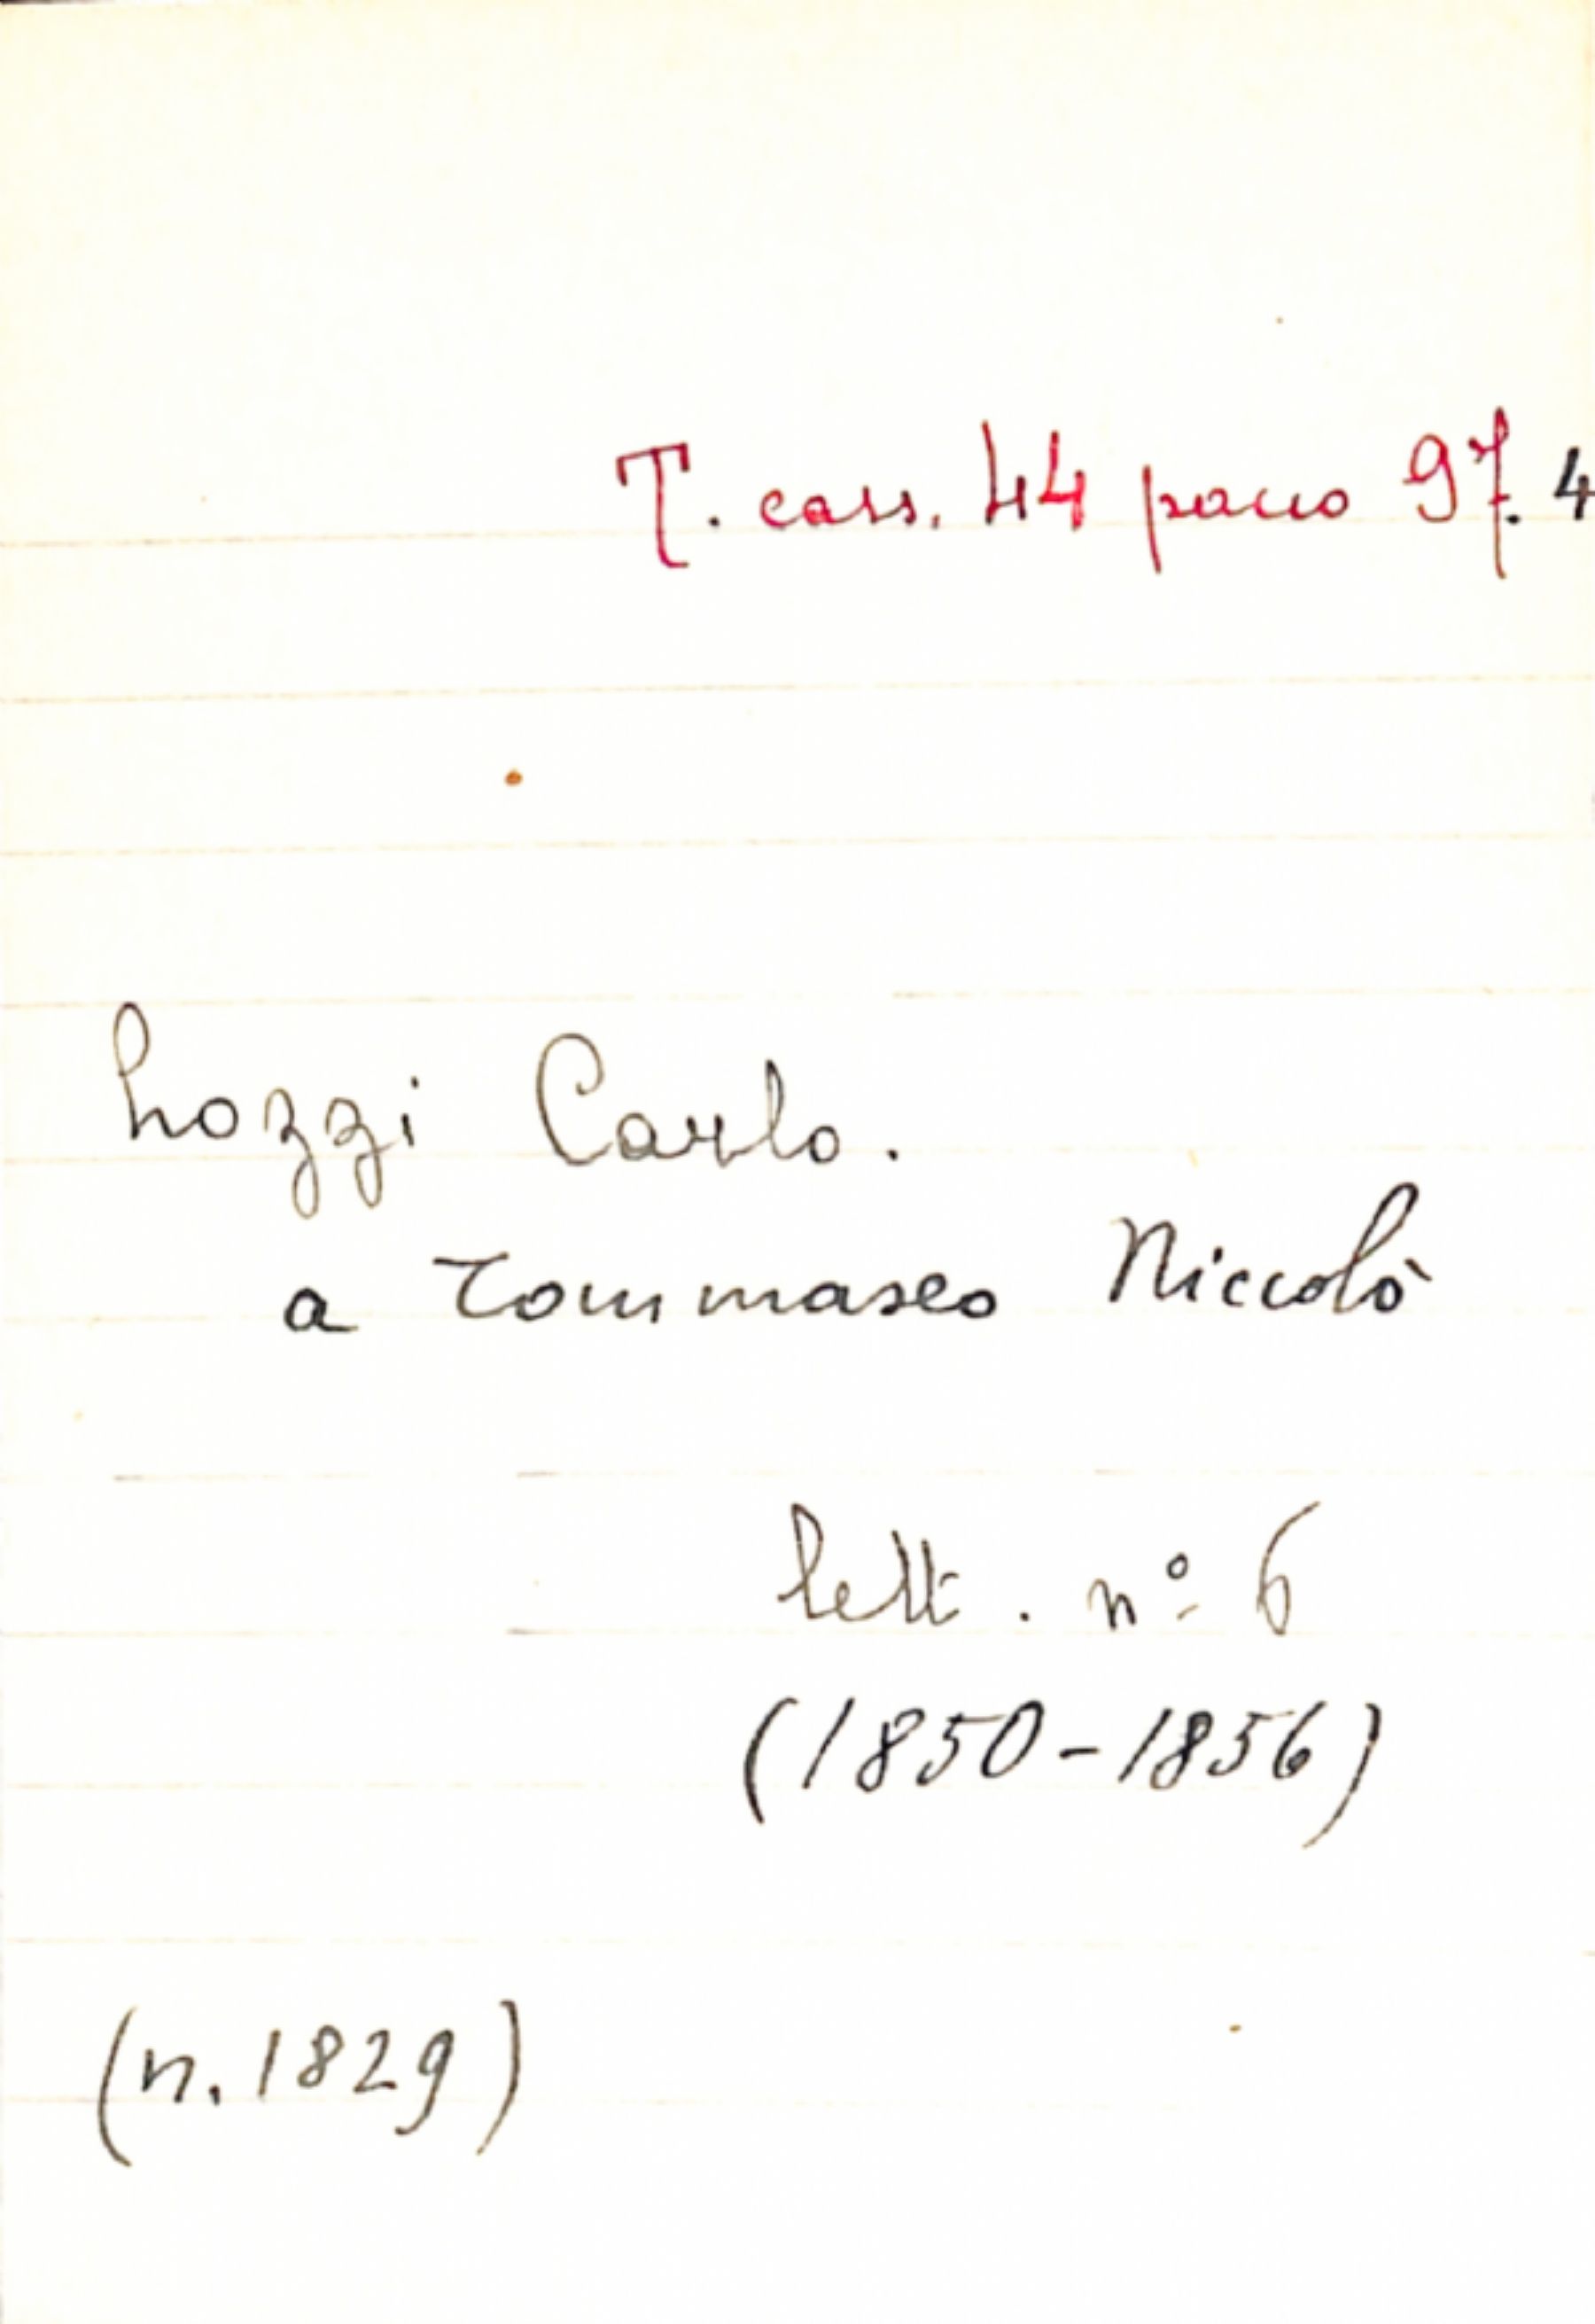 T. cass. 44 pacco 97. 4
Lozzi Carlo.
a Tommaseo Niccolò
lett. nº 6
(1850-1856)
(n. 1829)